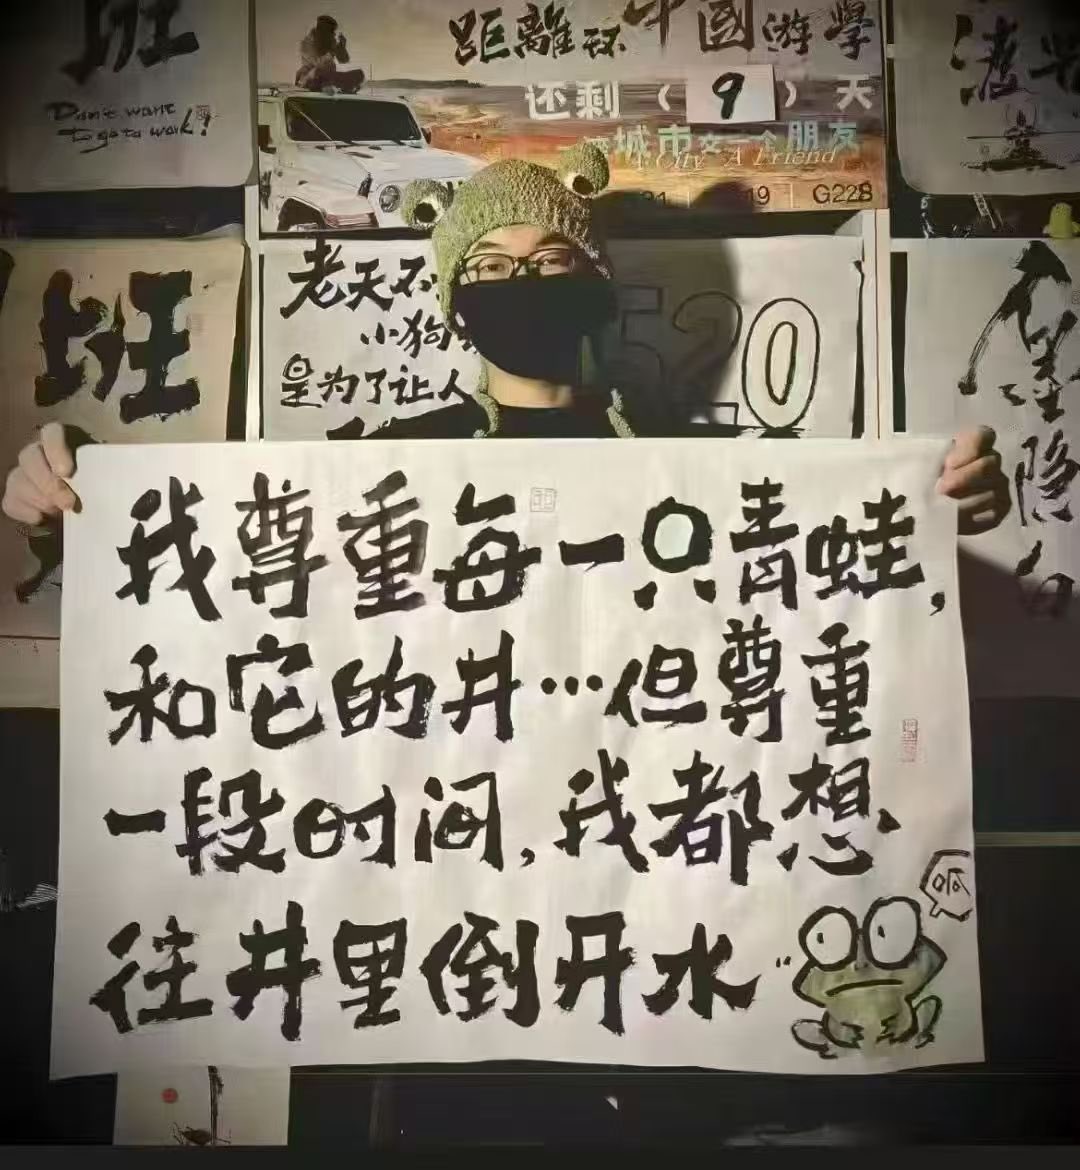 班
Don't want
to go to work!
距離环中國游學
还剩（9）天
城市交一个朋友
A City A Friend
19 | G228
班
老天不
小狗
是为了让人
520
隐
我尊重每一只青蛙，
和它的井…但尊重
一段时间，我都想
往井里倒开水
呱